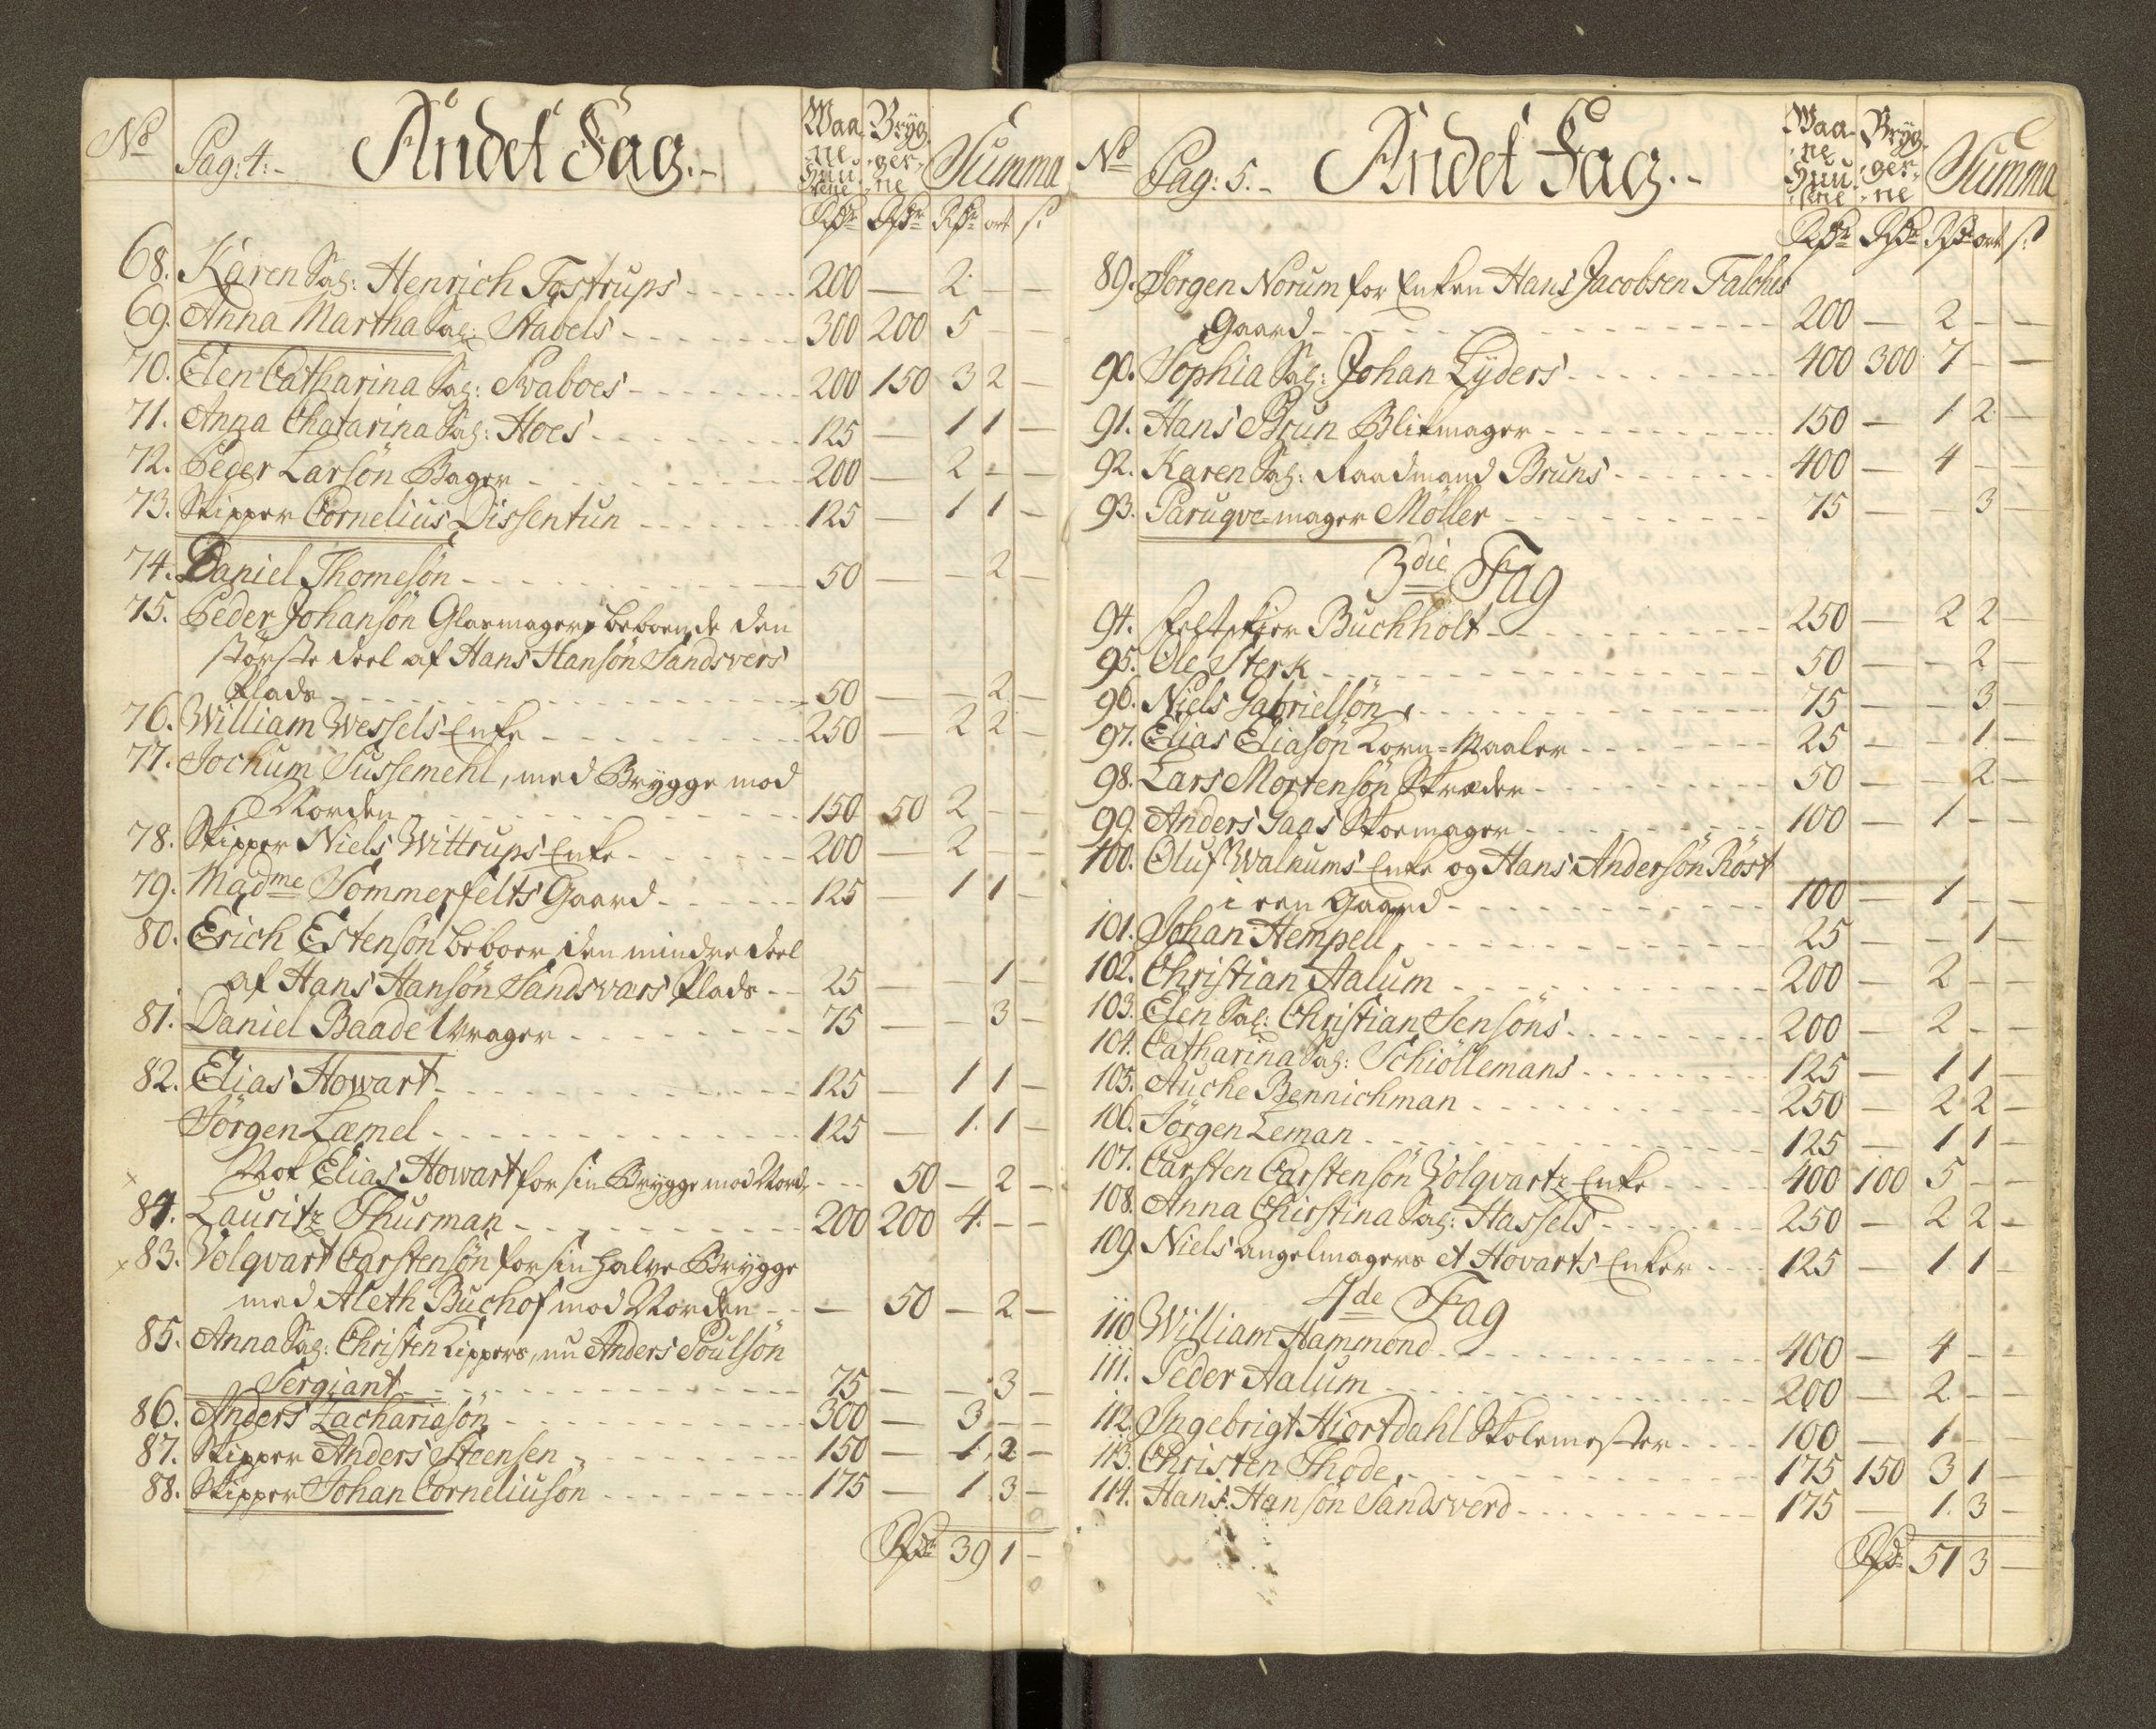 No Pag: 4:- Andet Fag.- Waa- Bryg- Summa
ne- ger-
Huu- ne
sene
Rdr Rdr Rdr ort s:
68. Karen Sal: Henrich Tostrups - - - - - 200 — 2 — —
69. Anna Martha Sal: Stabels - - - - - 300 200 5 — —
70. Elen Catharina Sal: Svaboes - - - - - 200 150 3 2 —
71. Anna Chatarina Sal: Hoes - - - - - 125 — 1 1 —
72. Peder Larsön Bager - - - - - 200 — 2 — —
73. Skipper Cornelius Dissentun - - - - - 125 — 1 1 —
74. Daniel Thomesön - - - - - 50 — — 2 —
75. Peder Johansön Glasmager beboende den
störste deel af Hans Hansön Sandsvers
Plads - - - - - 50 — — 2 —
76. William Wessels Enke - - - - - 250 — 2 2 —
77. Jochum Sussemehl, med Brygge mod
Norden - - - - - 150 50 2 — —
78. Skipper Niels Wittrups Enke - - - - - 200 — 2 — —
79. Madme Sommerfelts Gaard - - - - - 125 — 1 1 —
80. Erich Estensön beboer den mindre deel
af Hans Hansön Sandsvers Plads - - 25 — — 1 —
81. Daniel Baade Vrager - - - - - 75 — — 3 —
82. Elias Howart - - - - - 125 — 1 1 —
Jörgen Læmel - - - - - 125 — 1 1 —
x Nok Elias Howart for sin Brygge mod Nord - - - 50 — 2 —
84. Lauritz Thurman - - - - - 200 200 4 — —
x 83. Volqvart Carstensön for sin halve Brygge
med Aleth Buchof mod Norden - - — 50 — 2 —
85. Anna Sal: Christen Kippers, nu Anders Poulsön
Sergiant - - - - - 75 — — 3 —
86. Anders Zachariasön - - - - - 300 — 3 — —
87. Skipper Anders Steensen - - - - - 150 — 1 2 —
88. Skipper Johan Corneliusön - - - - - 175 — 1 3 —
Rdr 39 1 —
No Pag: 5.- Andet Fag.- Waa- Bryg- Summa
ne ger-
Huu- ne
sene
Rdr Rdr Rdr ort s:
89. Jörgen Norum for Enken Hans Jacobsen Falchs
Gaard - - - - - 200 — 2 — —
90. Sophia Sal: Johan Lyders - - - - - 400 300 7 — —
91. Hans Brun Blikmager - - - - - 150 — 1 2 —
92. Karen Sal: Raadmand Bruns - - - - - 400 — 4 — —
93. Paruqve-mager Möller - - - - - 75 — — 3 —
3die Fag
94. Feltskier Buchholt - - - - - 250 — 2 2 —
95. Ole Sterk - - - - - 50 — — 2 —
96. Niels Gabrielsön - - - - - 75 — — 3 —
97. Elias Eliasön Korn-Maaler - - - - - 25 — — 1 —
98. Lars Mortensön Skræder - - - - - 50 — — 2 —
99. Anders Gaas Skoemager - - - - - 100 — 1 — —
100. Oluf Walnums Enke og Hans Andersön Röst
i een Gaard - - - - - 100 — 1 — —
101. Johan Hempell - - - - - 25 — — 1 —
102. Christian Aalum - - - - - 200 — 2 — —
103. Elen Sal: Christian Jensöns - - - - - 200 — 2 — —
104. Catharina Sal: Schiöllemans - - - - - 125 — 1 1 —
105. Auche Bennichman - - - - - 250 — 2 2 —
106. Jörgen Leman - - - - - 125 — 1 1 —
107. Carsten Carstensön Volqvartz Enke - - - - - 400 100 5 — —
108. Anna Chirstina Sal: Hassels - - - - - 250 — 2 2 —
109. Niels Angelmagers et Hovarts Enker - - - 125 — 1 1 —
4de Fag
110. William Hammond - - - - - 400 — 4 — —
111. Peder Aalum - - - - - 200 — 2 — —
112. Ingebrigt Hiortdahl Skolemester - - - - 100 — 1 — —
113. Christen Thode - - - - - 175 150 3 1 —
114. Hans Hansön Sandsverd - - - - - 175 — 1 3 —
Rdr 51 3 —